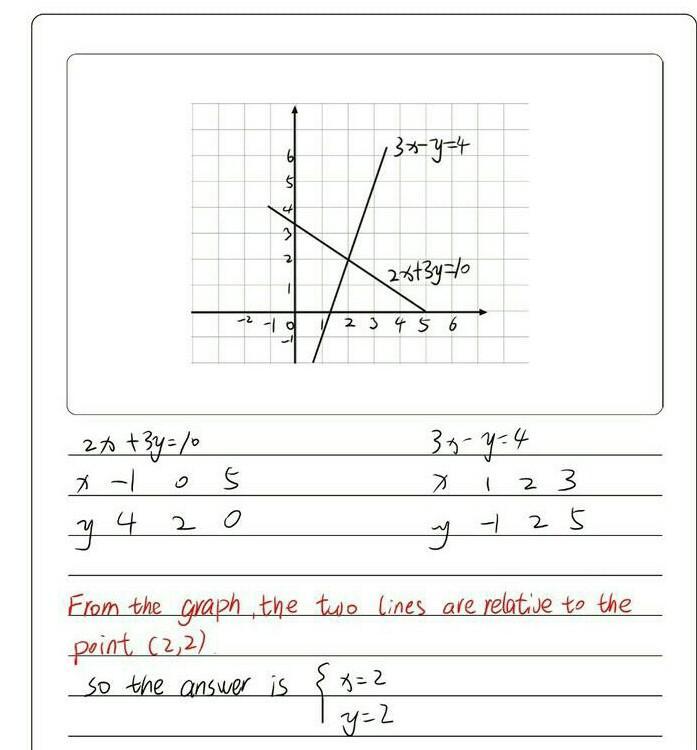 3x-y=4
6
5
4
3
2
1
2x+3y=10
-2 -1 0 1 2 3 4 5 6
-1
2x+3y=10 3x-y=4
x -1 0 5 x 1 2 3
y 4 2 0 y -1 2 5
From the graph, the two lines are relative to the
point (2,2).
so the answer is { x=2
y=2